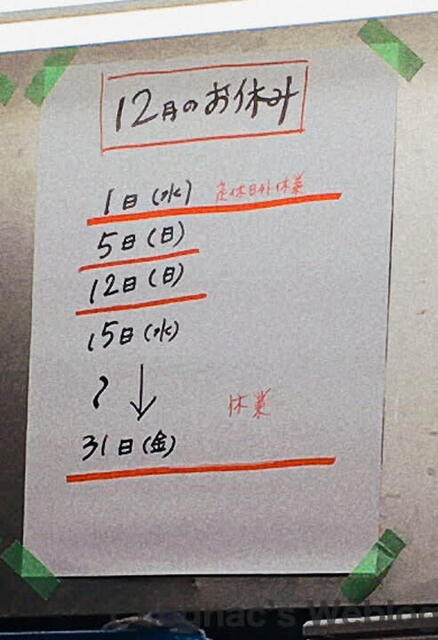 12月のお休み
1日(水) 定休日外休業
5日(日)
12日(日)
15日(水)
〜 ↓ 休業
31日(金)
gnac's Weblog